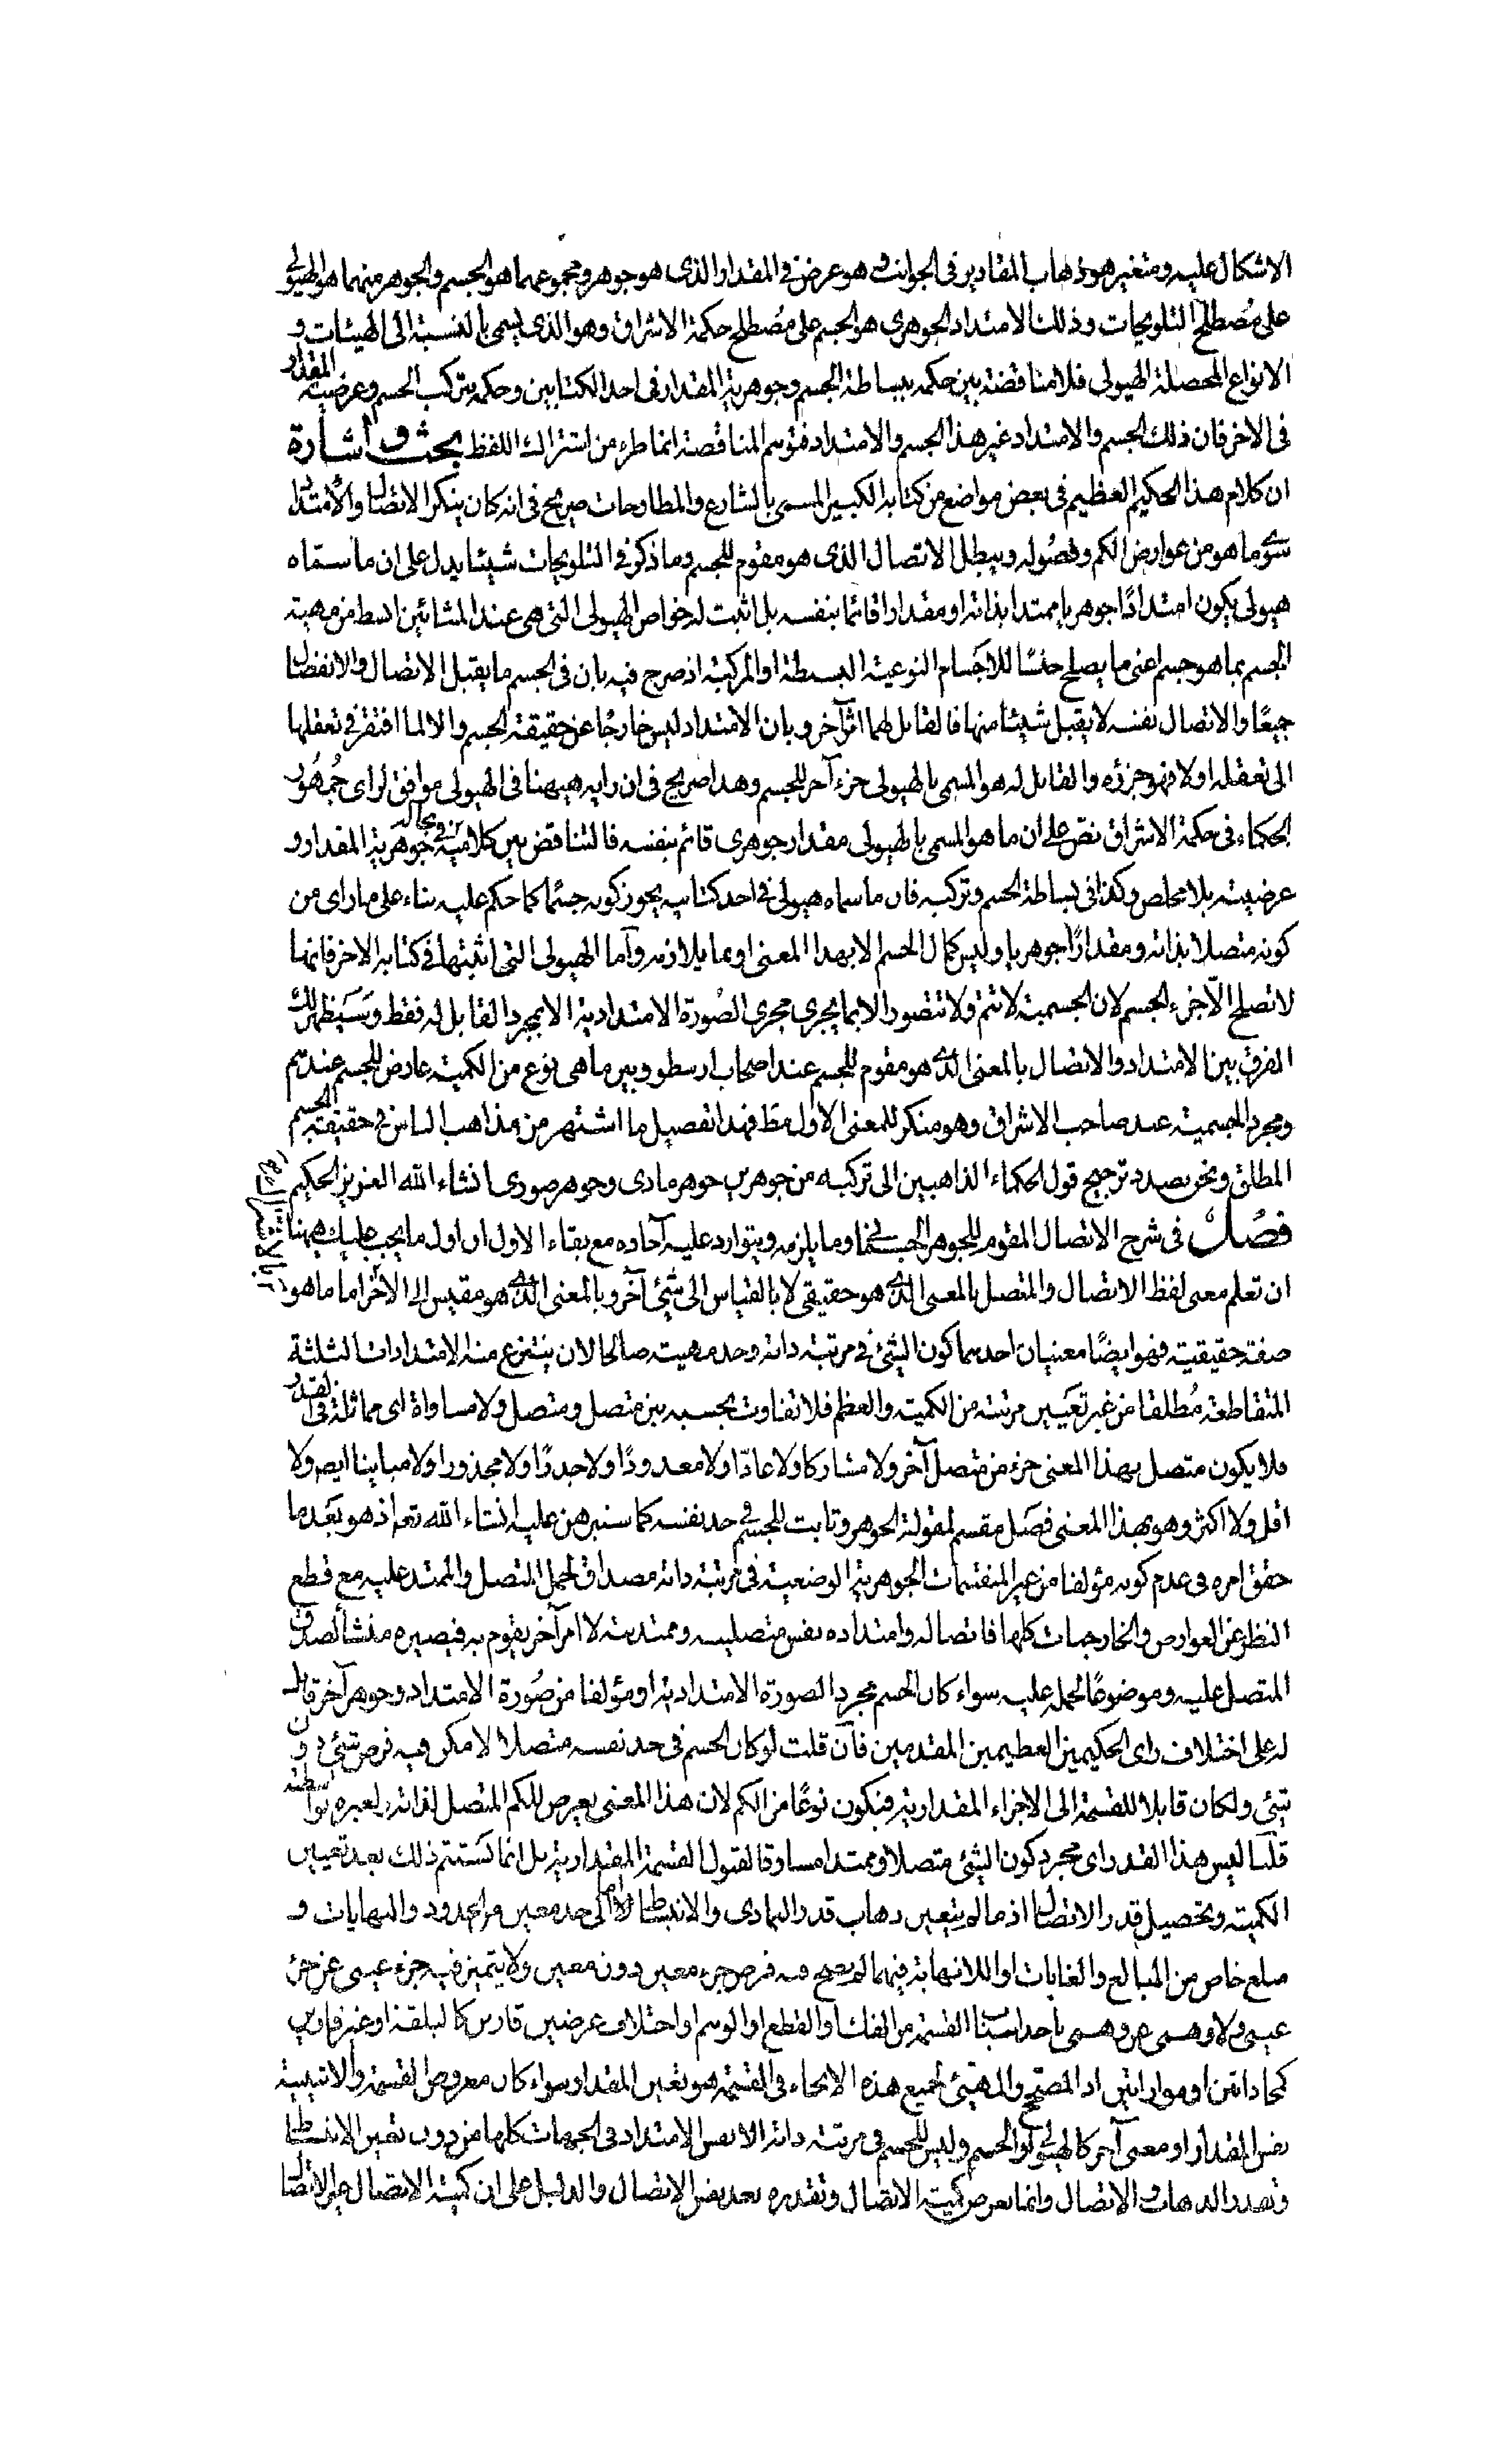 الاشكال عليه ومتغير هو ذهاب المقادير فى الجوانب وهو عرض فى المقدار الذى هو جوهر ومجموعهما هو الجسم والجوهر منهما هو الهيولى
على مصطلح التلويحات وذلك الامتداد الجوهرى هو الجسم على مصطلح حكمة الاشراق وهو الذى يسمى بالنسبة الى الهيئات و
الانواع المحصلة الهيولى فلا مناقضة بين حكمه ببساطة الجسم وجوهرية المقدار فى احد الكتابين وحكمه بتركب الجسم وعرضية المقدار
فى الاخر فان ذلك الجسم والامتداد غير هذا الجسم والامتداد فتوهم المناقضة انما طرء من اشتراك اللفظ بحث و اشارة
ان كلام هذا الحكيم العظيم فى بعض مواضع من كتابه الكبير المسمى بالشارع والمطارحات صريح فى انه كان ينكر الاتصال والامتداد
سوى ما هو من عوارض الكم وفصوله ويبطل الاتصال الذى هو مقوم للجسم وما ذكر فى التلويحات شيئا يدل على ان ما سمّاه
هيولى يكون امتدادًا جوهريا ممتدا بذاته او مقدارا قائما بنفسه بل اثبت له خواص الهيولى التى هى عند المشائين ابسط من مهية
الجسم بما هو جسم اعنى ما يصلح جنسًا للاجسام النوعية البسيطة او المركبة اذ صرح فيه بان فى الجسم ما يقبل الاتصال والانفصال
جميعًا والاتصال نفسه لا يقبل شيئا منها فالقابل لهما امر آخر وبان الامتداد ليس خارجًا عن حقيقة الجسم والا لما افتقر فى تعقلها
الى تعقله اولا فهو جزؤه والقابل له هو المسمى بالهيولى جزء آخر للجسم وهذا صريح فى ان رايه هيهنا فى الهيولى موافق لراى جمهور
الحكماء فى حكمة الاشراق نصّ على ان ما هو المسمى بالهيولى مقدار جوهرى قائم بنفسه فالتناقض بين كلاميه فى جوهرية المقدار و
عرضيته بلا مخلص وكذا فى بساطة الجسم وتركبه فان ما سماه هيولى فى احد كتابيه يجوز كونه جسمًا كما حكم عليه بناء على ما راى من
كونه متصلا بذاته ومقدارًا جوهريا وليس كمال الجسم الا بهذا المعنى او بما يلازمه وآما الهيولى التى اثبتها فى كتابه الاخر فانها
لا تصلح الّا جزء لجسم لان الجسمية لا تتم ولا تتصور الا بما يجرى مجرى الصُورة الامتدادية الا بمجرد القابل له فقط وسَيَظهر لك
الفرق بين الامتداد والاتصال بالمعنى الذى هو مقوم للجسم عند اصحاب ارسطو وبين ما هى نوع من الكمية عارض للجسم عندهم
ومجرد الجسمية عند صاحب الاشراق وهو منكر للمعنى الاول مط فهذا تفصيل ما اشتهر من مذاهب الناس فى حقيقة الجسم
المطلق ونحن بصدد ترجيح قول الحكماء الذاهبين الى تركبه من جوهرين جوهر مادى وجوهر صورى انشاء الله العزيز الحكيم
فصُل فى شرح الاتصال المقوم للجوهر الجسمانى وما يلزمه ويتوارد عليه آحاده مع بقاء الاول ان اول ما يجب عليك هيهنا
ان تعلم معنى لفظ الاتصال والمتصل بالمعنى الذى هو حقيقى لا بالقياس الى شئ آخر وبالمعنى الذى هو مقيس الى الآخر اما ما هو
صفة حقيقية فهو ايضًا معنيان احدهما كون الشئ فى مرتبة ذاته وحد مهيته صالحا لان ينتزع منه الامتدادات الثلثة
المتقاطعة مُطلقا من غير تعيّين مرتبة من الكمية والعظم فلا تفاوت بحسبه بين متصل ومتصل ولا مساواة اى مماثلة فى القدر
فلا يكون متصل بهذا المعنى جزء من متصل آخر ولا مشاركا ولا عادّا ولا معدودًا ولا جذرًا ولا مجذورا ولا مباينا ايضا ولا
اقل ولا اكثر وهو بهذا المعنى فصَل مقسم لمقولة الجوهر وثابت للجسم فى حد نفسه كما سنبرهن عليه انشاء الله تعم اذ هو بَعَد ما
حقق امره فى عدم كونه مؤلفا من غير المنقسمات الجوهرية الوضعية فى مرتبة ذاته مصداق لحمل المتصل والممتد عليه مع قطع
النظر عن العوارض والخارجيات كلها فاتصاله وامتداده نفس متصليته وممتديته لا امر آخر يقوم به فيصيره منشأ لصدق
المتصل عليه وموضوعًا لحمله عليه سواء كان الجسم مجرد الصورة الامتدادية او مؤلفا من صُورة الامتداد وجوهر آخر قابل
له على اختلاف راى الحكيمين العظيمين المقدمين فآن قلت لو كان الجسم فى حد نفسه متصلا لامكن فيه فرض شئ دون
شئ ولكان قابلا للقسمة الى الاجزاء المقدارية فيكون نوعًا من الكم لان هذا المعنى يعرض للكم المتصل لذاته ولغيره بواسطته
قلنا ليس هذا القدر اى مجرد كون الشئ متصلا وممتدا مساوقا لقبول القسمة المقدارية بل انما تستتم ذلك بعد تعيين
الكمية وتحصيل قدر الاتصال اذ ما لم يتعين ذهاب قدر التمادى والانبساط الى حد معين من الحدود والنهايات و
مبلغ خاص من المبالغ والغايات او اللانهاية فيهما لم يصح فيه فرض جزء معين دون معين ولا يتميز فيه جزء عينى عن جزء
عينى ولا وهمى عن وهمى باحد اسباب القسمة من الفك او القطع او الوهم او اختلاف عرضين قارين كالبلقة او غير قارين
كمحاذاتين او موازاتين اذ المصحح والمهيئ لجميع هذه الانحاء فى القسمة هو تعين المقدار سواء كان معروض القسمة والاثنينية
نفس المقدار او معنى آخر كالهيولى او الجسم وليس للجسم فى مرتبة ذاته الا نفس الامتداد فى الجهات كلها من دون تعين الانبساط
وتحدد الذهاب والاتصال وانما يعرض كمية الاتصال وتقدره بعد نفس الاتصال والدليل على ان كمية الاتصال غير الاتصال